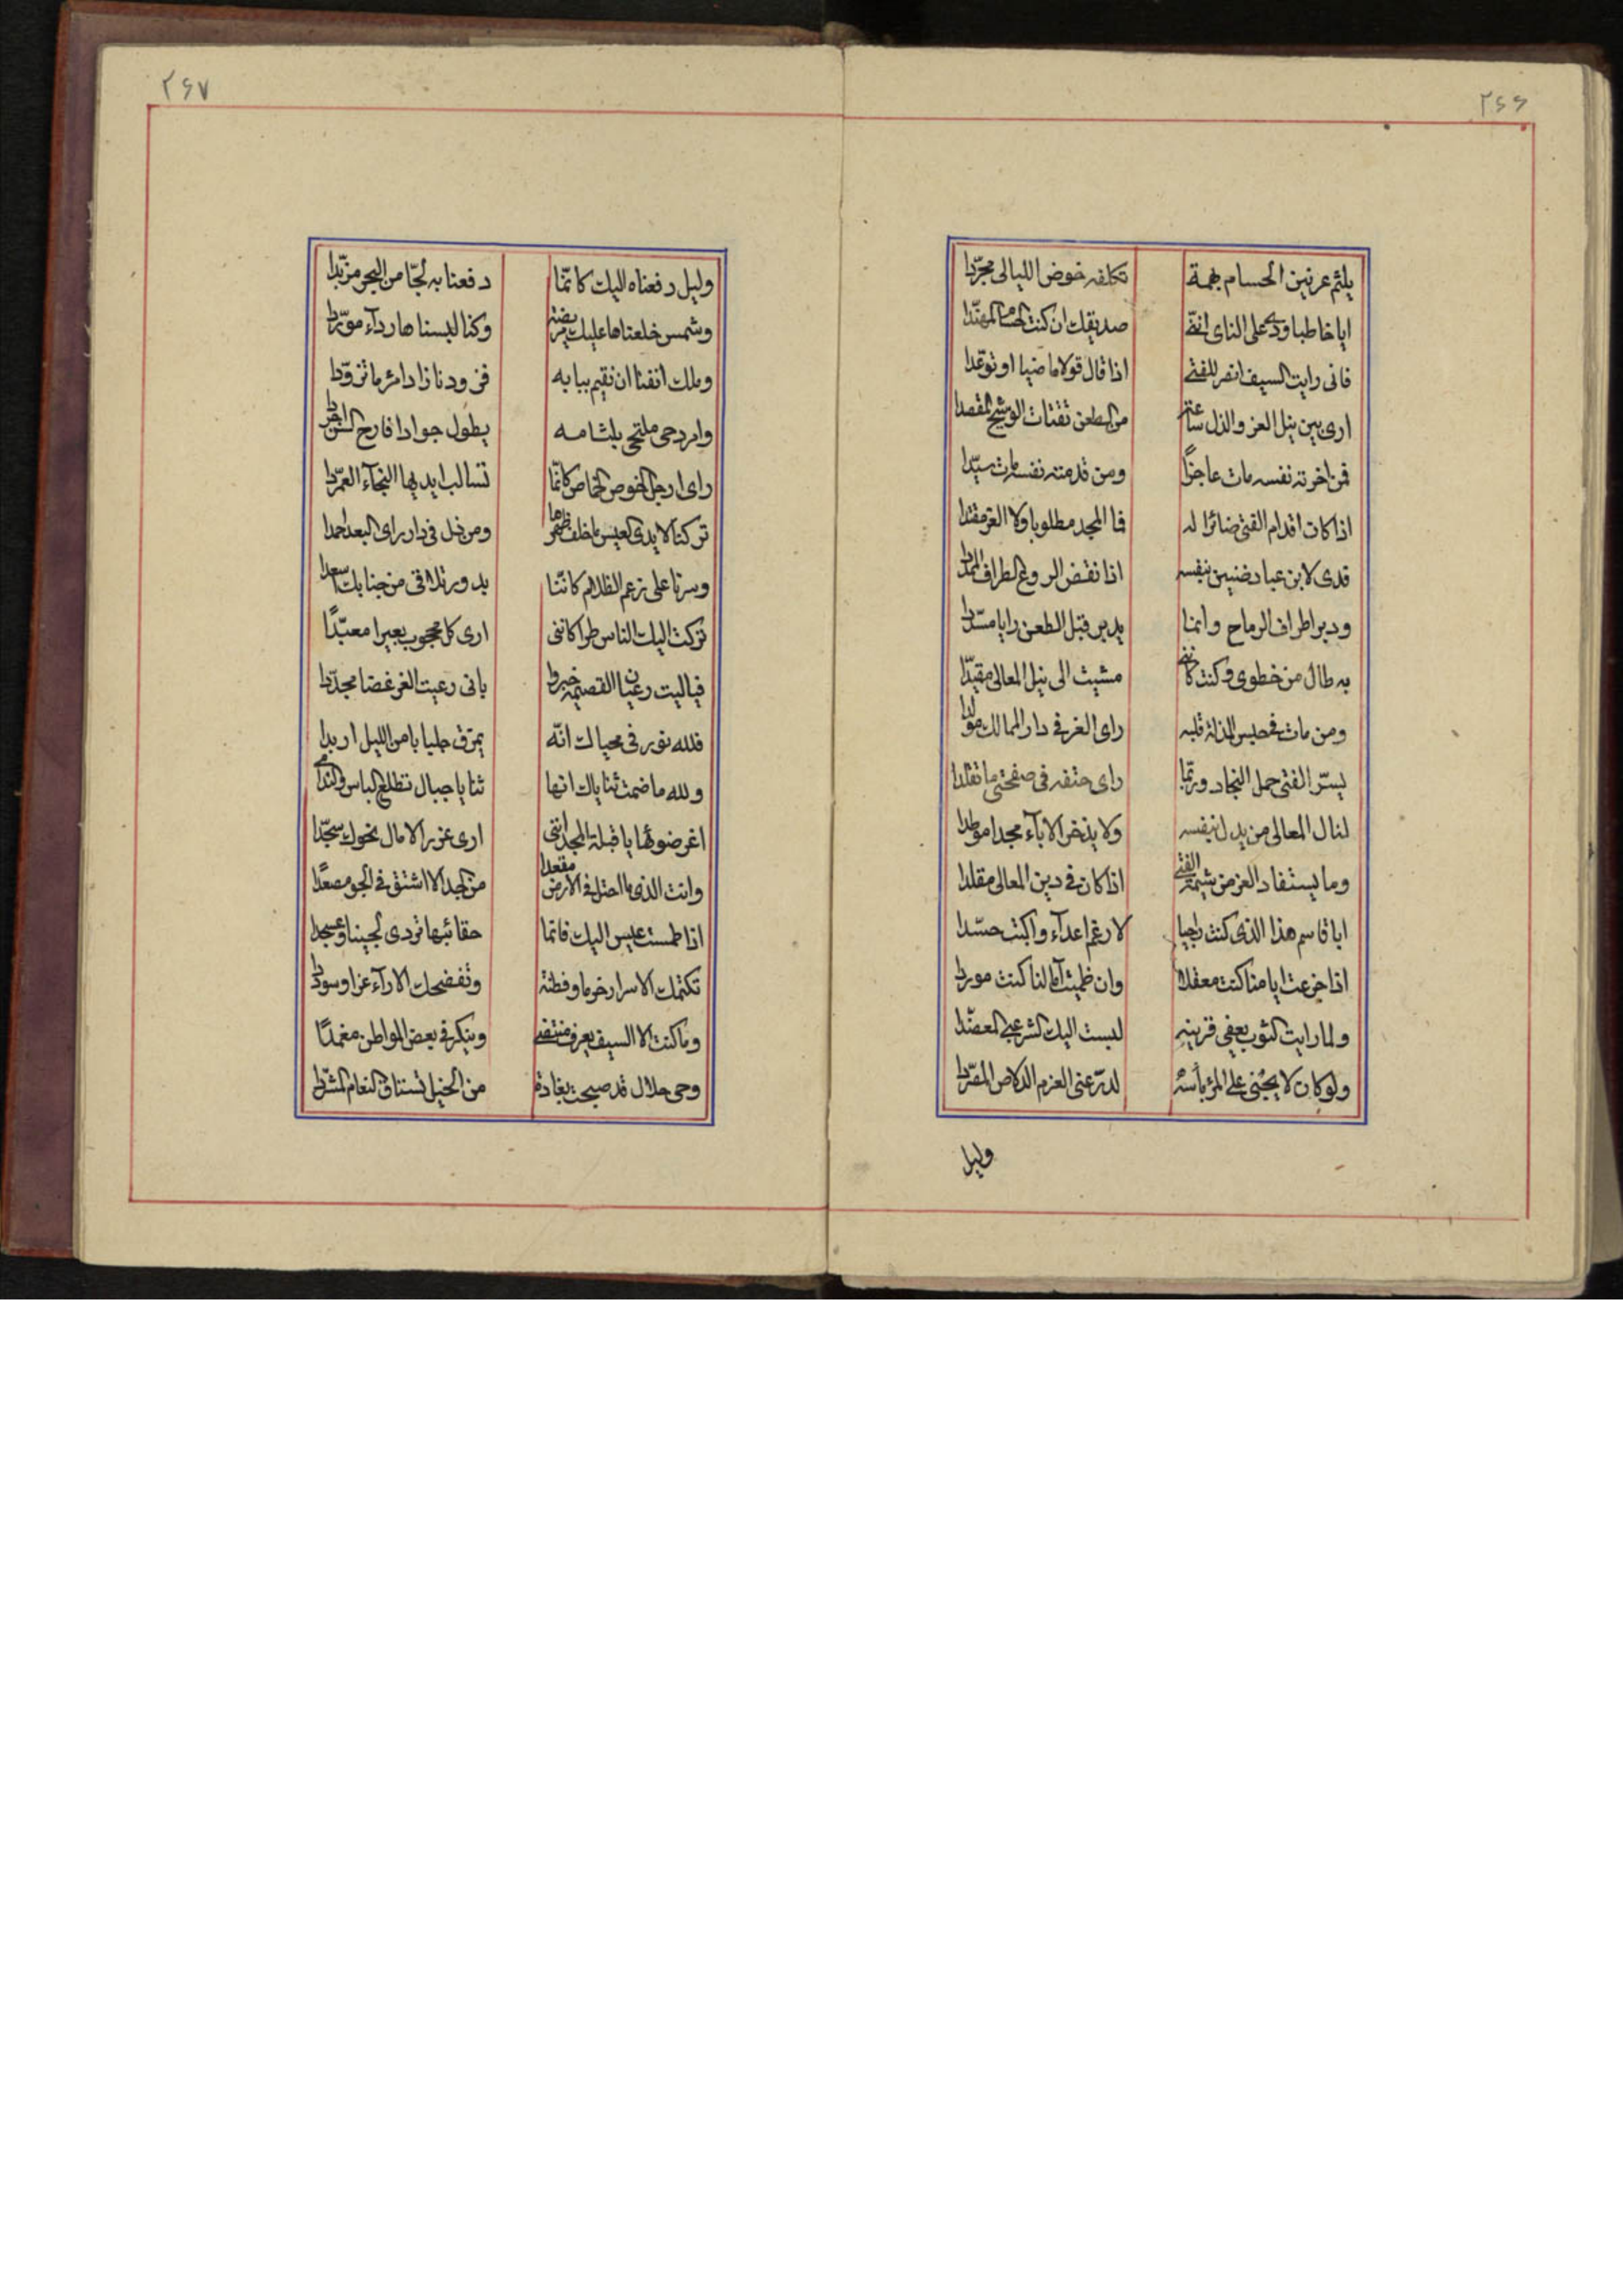 ٢۶۶
يلثم عرنين الحسام بهمة تكلفه خوض الليالى مجرّدا
ايا خاطبا ودى على الناى انّنى صديقك ان كنت الحسام المهنّدا
فانى رايت السيف انصر للفتى اذا قال قولا ماضيا او توعّدا
ارى بين نيل العز والذل ساعة من الطعن تقتات الوشيج المقصدا
فمن اخرته نفسه مات عاجزًا ومن قدمته نفسه مات سيّدا
اذا كان اقدام الفتى ضائرا له فما المجد مطلوبا ولا العز مفتدا
فدى لابن عباد ضنين بنفسه اذا نقض الروع الطراف الممدّدا
ودبر اطراف الرماح وانما يدبر قبل الطعن رايا مسدّدا
به طال من خطوى وكنت كاننى مشيت الى نيل المعالى مقيّدا
ومن مات فى حبس المذلة قلبه راى العز فى دار الممالك مولدا
يسرّ الفتى حمل النجاد وربّما راى حتفه فى صفحتى ما تقلدا
لنال المعالى من يدل بنفسه ولا يذخر الاباء مجدا موطدا
وما يستفاد العز من شيمة الفتى اذا كان فى دين المعالى مقلدا
ابا قاسم هذا الذى كنت راجيا لارغم اعدآء واكبت حسّدا
اذا جزعت ايامنا كنت معقلا وان ظميت آمالنا كنت موردا
ولما رايت كثوب يعفى قرينه لبست اليك الشرعبى المعضّدا
ولو كان لا يجبنى على المرء بأسه لدرّعنى العزم الدلاص المسرّدا
وليل
٢۶٧
وليل دفعناه اليك كانّما دفعنا به لجّا من اليم مزبّدا
وشمس خلعناها عليك مريضة وكنا لبسناها ردآء مورّدا
وملك انفنا ان نقيم ببابه فزودنا زادا مرء ما تزوّدا
وامرد حى ملتحى بلثامه يطول جوادا قارح السن اجردا
راى ارجل الخوص الخماص كانّما تسالب ايديها النجآء العمرّدا
تركنا لايدى العيس ما خلف ظهرها ومن ذل فى دار راى البعد احمدا
وسرنا على زعم الظلام كاننا بدور تلاقى من جنابك اسعدا
تركت اليك الناس طرا كاننى ارى كل محجوب بعيرا معبّدًا
فيا ليت رعيان القصيمة خبروا بانى رعيت العز غضا مجدّدا
فلله نور فى محياك انّه يمزق جلبابا من الليل اربدا
ولله ما ضمت ثناياك انها ثنايا جبال تطلع الباس والندى
اغر ضوئها يا قبلة المجد اننى ارى غرر الامال نحوك سجّدا
وانت الذى ما احتل فى الارض مقعدا من المجد الا اشتق فى الجو مصعدًا
اذا طمست عيس اليك فانما حقائبها تزدى لجينا وعسجدا
تكتمك الاسرار حزما وفطنة وتفضحك الارآء عزا وسوددا
وما كنت الا السيف يعرف منتضى وينكر فى بعض المواطن مغمدًا
وحى حلال قد صبحت بغارة من الخيل تستاق النعام المشرّدا